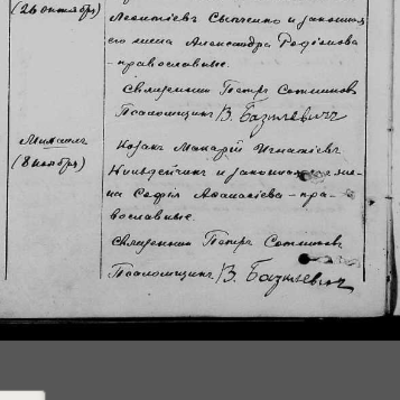 (26 октября)
Леонтіевъ Сыпченко и законная
его жена Александра Родіонова
- православные.
Священникъ Петръ Сотниковъ
Псаломщикъ В. Базилевичъ
Михаилъ
(8 ноября)
Козакъ Макарій Игнатіевъ
и законная его же-
на Софія Аѳанасіева - пра-
вославные.
Священникъ Петръ Сотниковъ
Псаломщикъ В. Базилевичъ